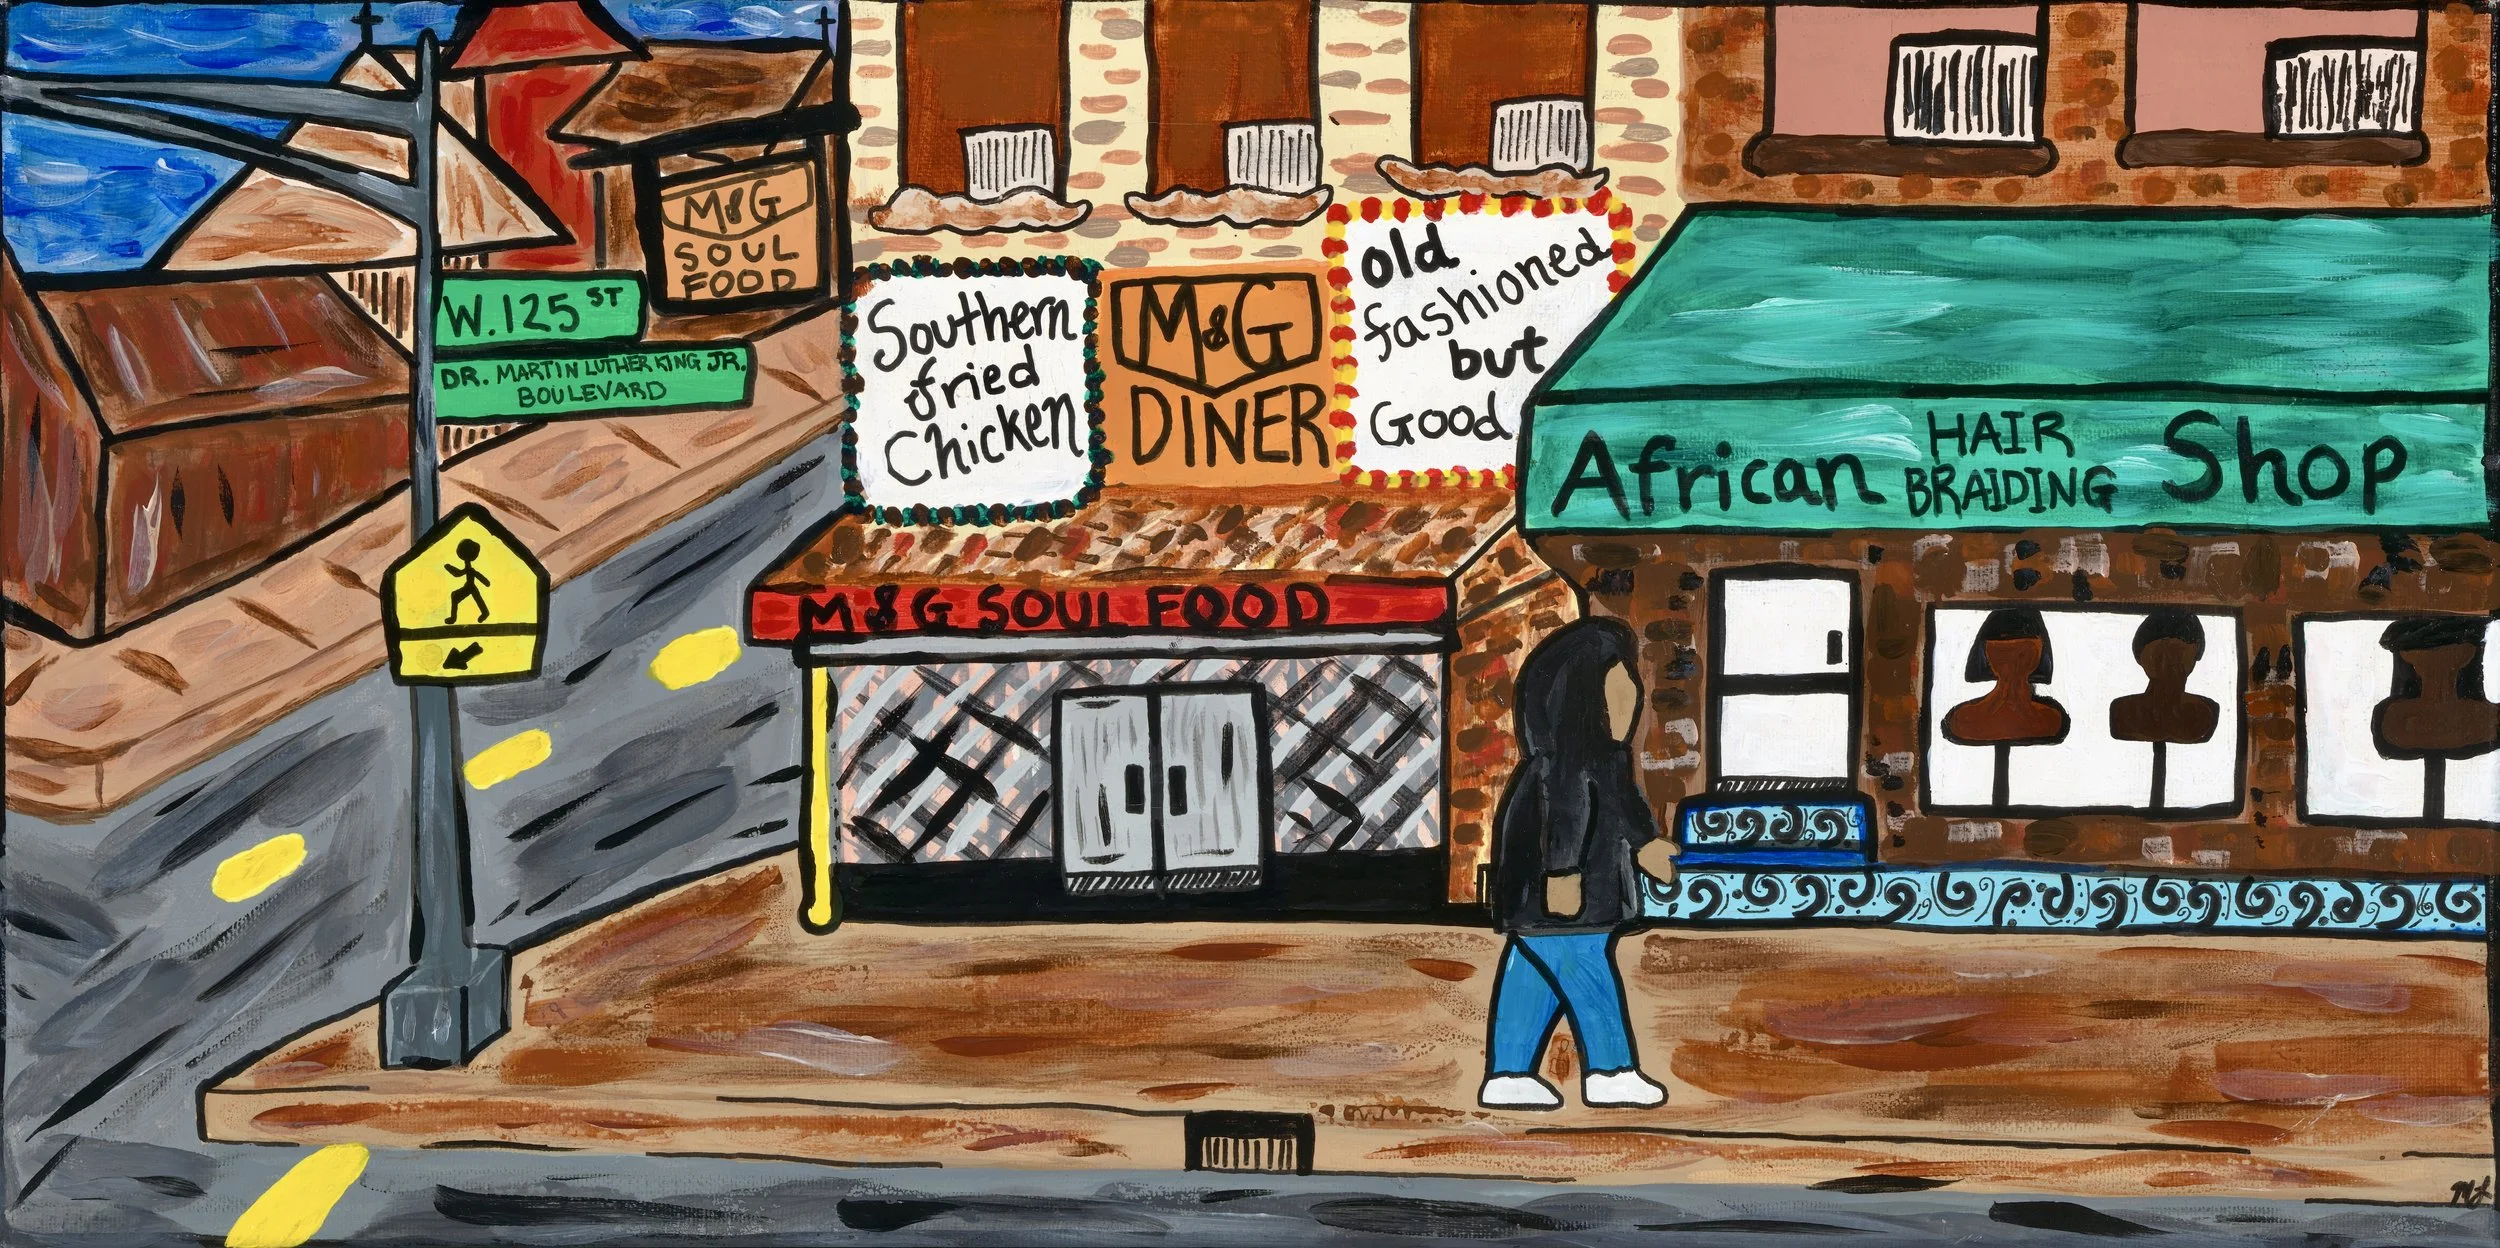 M&G
SOUL
FOOD
W. 125 ST
DR. MARTIN LUTHER KING JR.
BOULEVARD
Southern
fried
Chicken
M&G
DINER
Old
fashioned
but
Good
M&G SOUL FOOD
African HAIR BRAIDING Shop